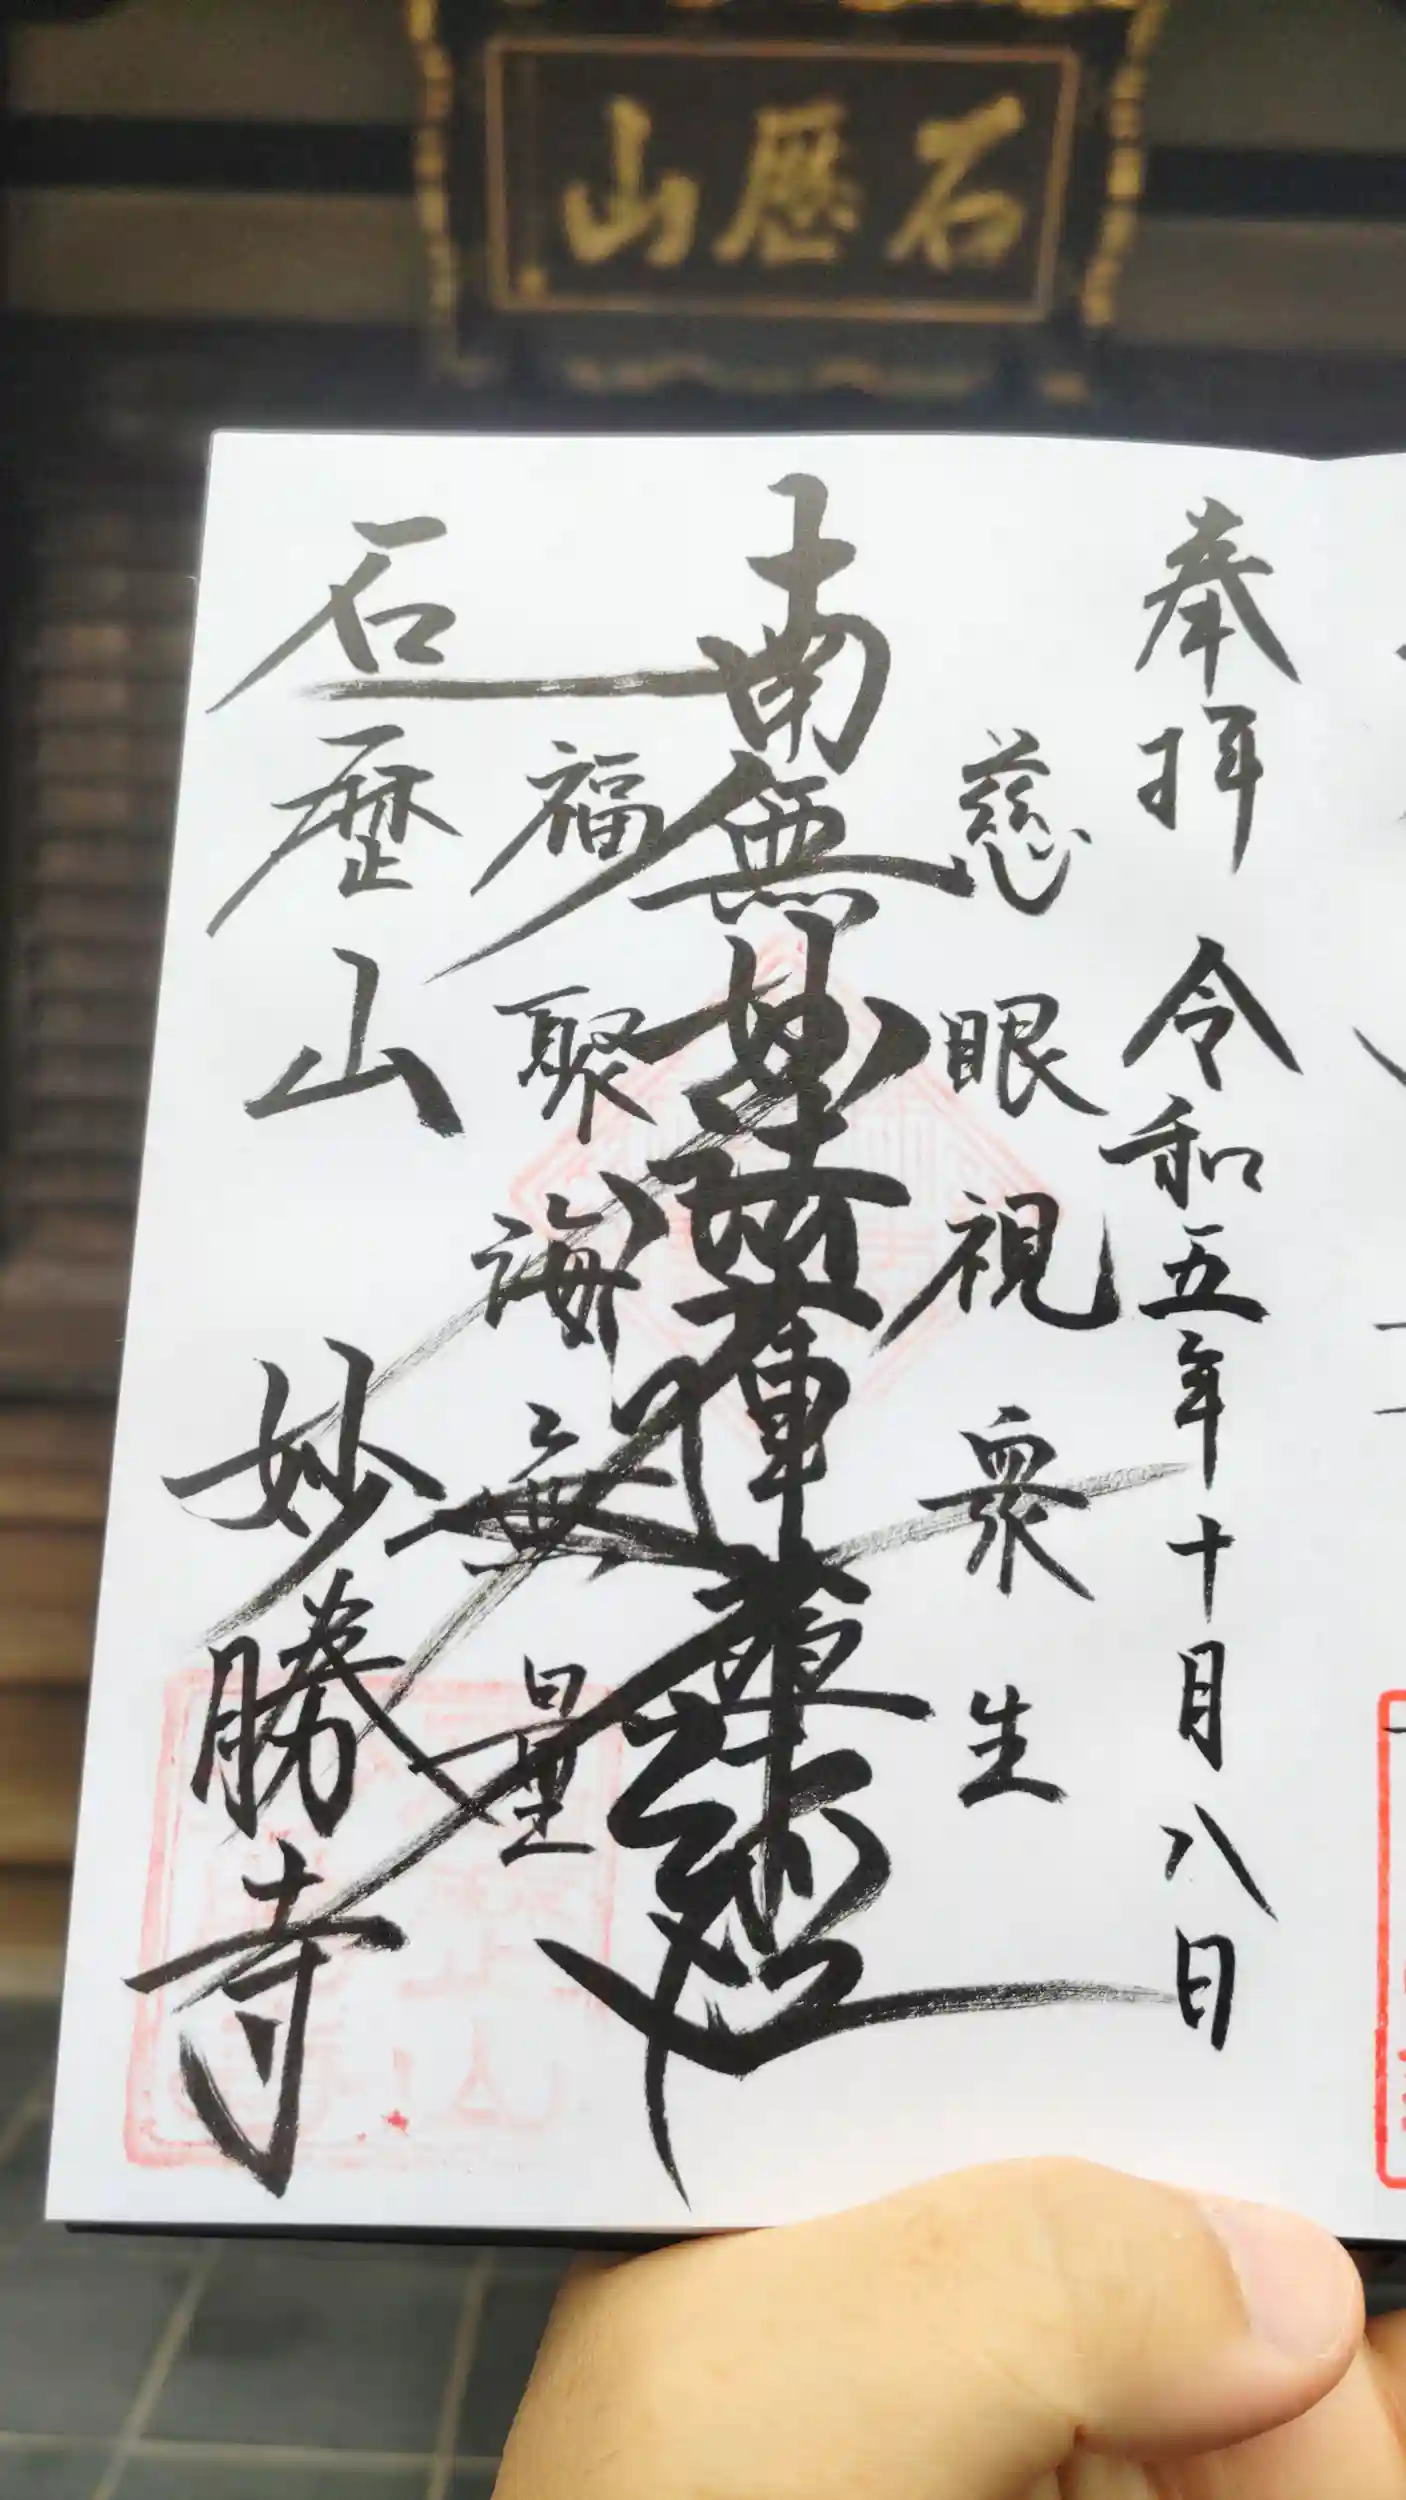 石歴山
奉拝 令和五年十月八日
慈眼視衆生
南無妙法蓮華経
福聚海無量
石歴山 妙勝寺